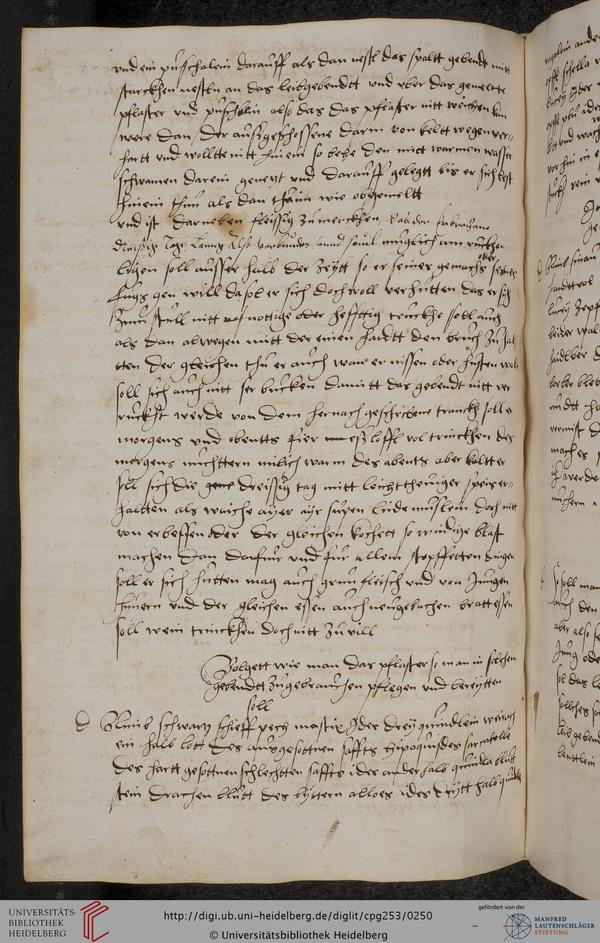 vnd ein püschalein darauff als dan nestl das spaltt gebendt mitt
starckhen nestln an das leibgebendtt vnd vber das gemeltte
pflaster vnd püschlin also das das pflaster nitt weichen kan
were dan der außgeschossene darm von keltt wegen ver¬
hartt vnd wolltte nitt hinein so behe den mitt warmen wasser
schwamen darein genezt vnd darauff gelegtt bis er sich lest
hinein thun als dan thů im wie obgemeltt
vnd ist darneben fleissig zů merckhen
dreissig tag lanng also verbunden vnnd souil müglich am rückhen
ligen soll ausser halb der Zeytt so er seines gemachs oder seines
fůgs gen will da sol er sich doch woll verhütten das er sich
Zum stull nitt nottige oder hefftig truckhe soll auch
als dan alwegen mitt der einen handtt den bruch zů hal
tten der gleichen thů er auch wan er niessen oder hůsten wolt
soll sich auch nitt ser bucken damitt das gebendt nitt ver
ruckht werde von dem hernach geschribene tranckh soll er
morgens vnd abentts fier eßlöffl vol trinckhen des
morgens nüchttern milch warm des abents aber koltt er
soll sich die dreissig tag mitt leichttheüiger speis er¬
haltten als waiche ayer ayr supen linde müslein doch nitt
von erbessen oder der gleichen kochett so windige blast
machen dan dafür vnd für allem stopffetten dingen
soll er sich hütten mag auch grün fleisch vnd von Jungen
hünern vnd der gleichen essen auch neugebachen bratt essen
soll wein trinckhen doch nitt zů vill
Volgett wie man das pflaster so man in solchen
gebendtt zůgebrauchen pflegen vnd bereytten
soll
Nimb schwarz schieff pech mastix Jdes drey quindlein weirach
ein halb lott des ausgesottnen saffts hipoquisdes sarcacolle
des hartt gesottnen schlechtten saffts ides anderhalb quindla blutt
stein drachen blůtt des bittern alloes ides dritt halb quindla
UNIVERSITÄTS-
BIBLIOTHEK
HEIDELBERG
http://digi.ub.uni-heidelberg.de/diglit/cpg253/0250
© Universitätsbibliothek Heidelberg
gefördert von der
MANFRED
LAUTENSCHLÄGER
STIFTUNG